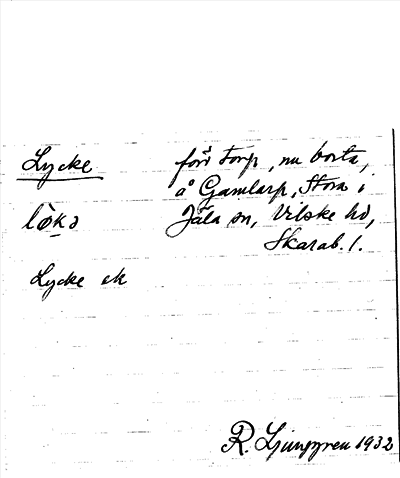 Lycke
förr torp, nu borta,
å Gamlarp, Stora i
lòkə
Jäla sn, Vilske hd,
Skarab. l.
Lycke ek
R. Ljunggren 1932